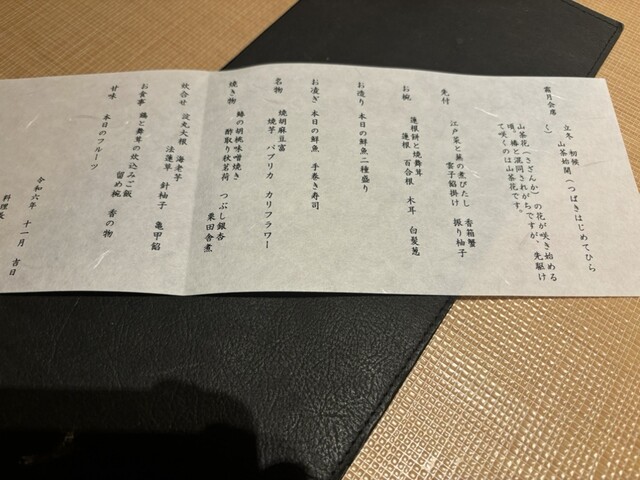 霜月会席
立冬 初候
山茶始開(つばきはじめてひら
く)
山茶花(さざんか)の花が咲き始める
頃。椿と混同されがちですが、先駆け
て咲くのは山茶花です。
先付
江戸菜と蕪の煮びたし 香箱蟹
雲子餡掛け 振り柚子
お椀
蓮根餅と焼舞茸
蓮根 百合根 木耳 白髪葱
お造り 本日の鮮魚二種盛り
お凌ぎ 本日の鮮魚 手巻き寿司
名物
焼胡麻豆富
焼芋 パプリカ カリフラワー
焼き物
鰆の胡桃味噌焼き つぶし銀杏
酢取り茗荷 栗田舎煮
炊合せ 淀丸大根 海老芋 亀甲餡
法蓮草 針柚子
お食事 鶏と舞茸の炊込みご飯
留め椀 香の物
甘味 本日のフルーツ
令和六年 十一月 吉日
料理長